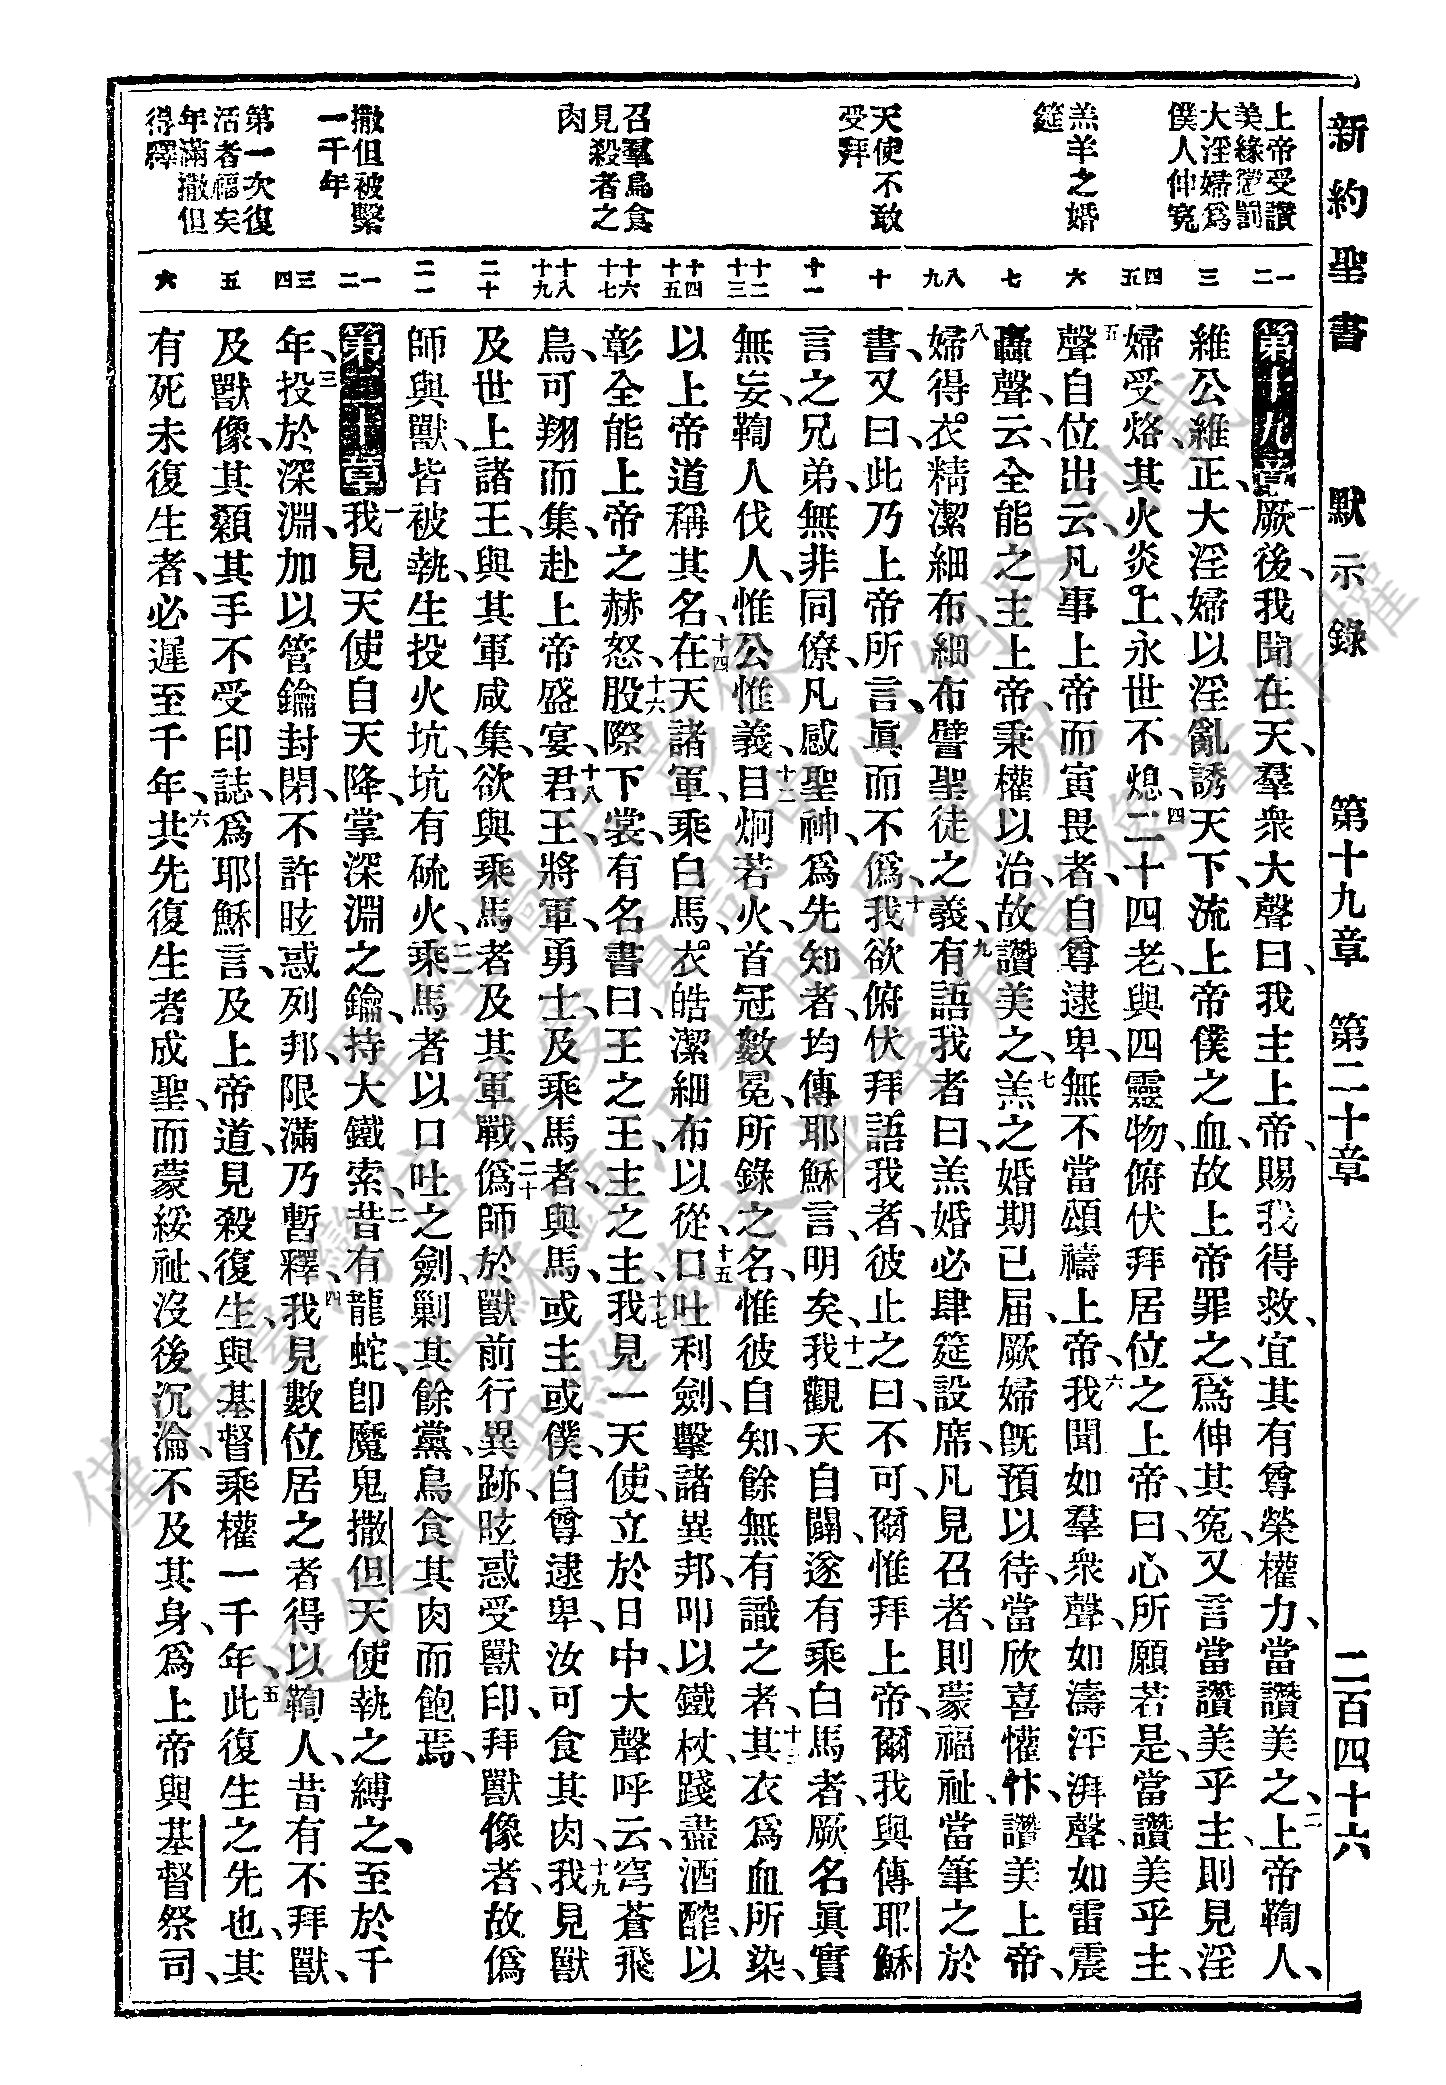 新約聖書 默示錄 第十九章 第二十章 二百四十六
上帝受讚
美緣懲罰
大淫婦爲
僕人伸寃
羔羊之婚
筵
天使不敢
受拜
召羣鳥食
見殺者之
肉
撒但被繫
一千年
第一次復
活者福矣
年滿撒但
得釋
一二
三
四五
六
七
八九
十
十一
十二十三
十四十五
十六十七
十八十九
二十
二一
一二
三四
五
六
第十九章一厥後、我聞在天、羣衆大聲曰、我主上帝、賜我得救、宜其有尊榮權力、當讚美之、二上帝鞫人、
維公維正、大淫婦以淫亂、誘天下、流上帝僕之血、故上帝罪之、爲伸其寃、又言當讚美乎主、則見淫
婦受烙、其火炎上、永世不熄、四二十四老、與四靈物、俯伏拜居位之上帝曰、心所願若是、當讚美乎主、
五聲自位出云、凡事上帝而寅畏者、自尊逮卑、無不當頌禱上帝、六我聞如羣衆聲、如濤泙湃聲、如雷震
轟聲、云、全能之主上帝、秉權以治、故讚美之、七羔之婚期已屆、厥婦旣預以待、當欣喜懽忭、讚美上帝、
八婦得衣精潔細布、細布譬聖徒之義、九有語我者曰、羔婚必肆筵設席、凡見召者、則蒙福祉、當筆之於
書、又曰、此乃上帝所言、眞而不僞、十我欲俯伏拜語我者、彼止之曰、不可、爾惟拜上帝、爾我與傳耶穌
言之兄弟、無非同僚、凡感聖神、爲先知者、均傳耶穌言、明矣、十一我觀天自闢、遂有乘白馬者、厥名眞實
無妄、鞫人伐人、惟公惟義、十二目烱若火、首冠數冕、所錄之名、惟彼自知、餘無有識之者、十三其衣爲血所染、
以上帝道稱其名、十四在天諸軍、乘白馬、衣皓潔細布以從、十五口吐利劍、擊諸異邦、叩以鐵杖、踐盡酒醡、以
彰全能上帝之赫怒、十六股際下裳、有名書曰、王之王、主之主、十七我見一天使、立於日中、大聲呼云、穹蒼飛
鳥、可翔而集、赴上帝盛宴、十八君王、將軍、勇士、及乘馬者、與馬、或主或僕、自尊逮卑、汝可食其肉、十九我見獸
及世上諸王、與其軍咸集、欲與乘馬者及其軍戰、二十僞師於獸前行異跡、眩惑受獸印、拜獸像者、故僞
師與獸、皆被執、生投火坑、坑有硫火、二一乘馬者以口吐之劍、剿其餘黨、鳥食其肉而飽焉、
第二十章一我見天使自天降、掌深淵之鑰、持大鐵索、二昔有龍蛇、卽魔鬼撒但、天使執之縛之、至於千
年、三投於深淵、加以管鑰封閉、不許眩惑列邦、限滿乃暫釋、四我見數位居之者、得以鞫人、昔有不拜獸、
及獸像、其顙其手不受印誌、爲耶穌言、及上帝道、見殺復生、與基督乘權一千年、五此復生之先也、其
有死未復生者、必遲至千年、六共先復生者成聖、而蒙綏祉、沒後沉淪、不及其身、爲上帝與基督祭司、